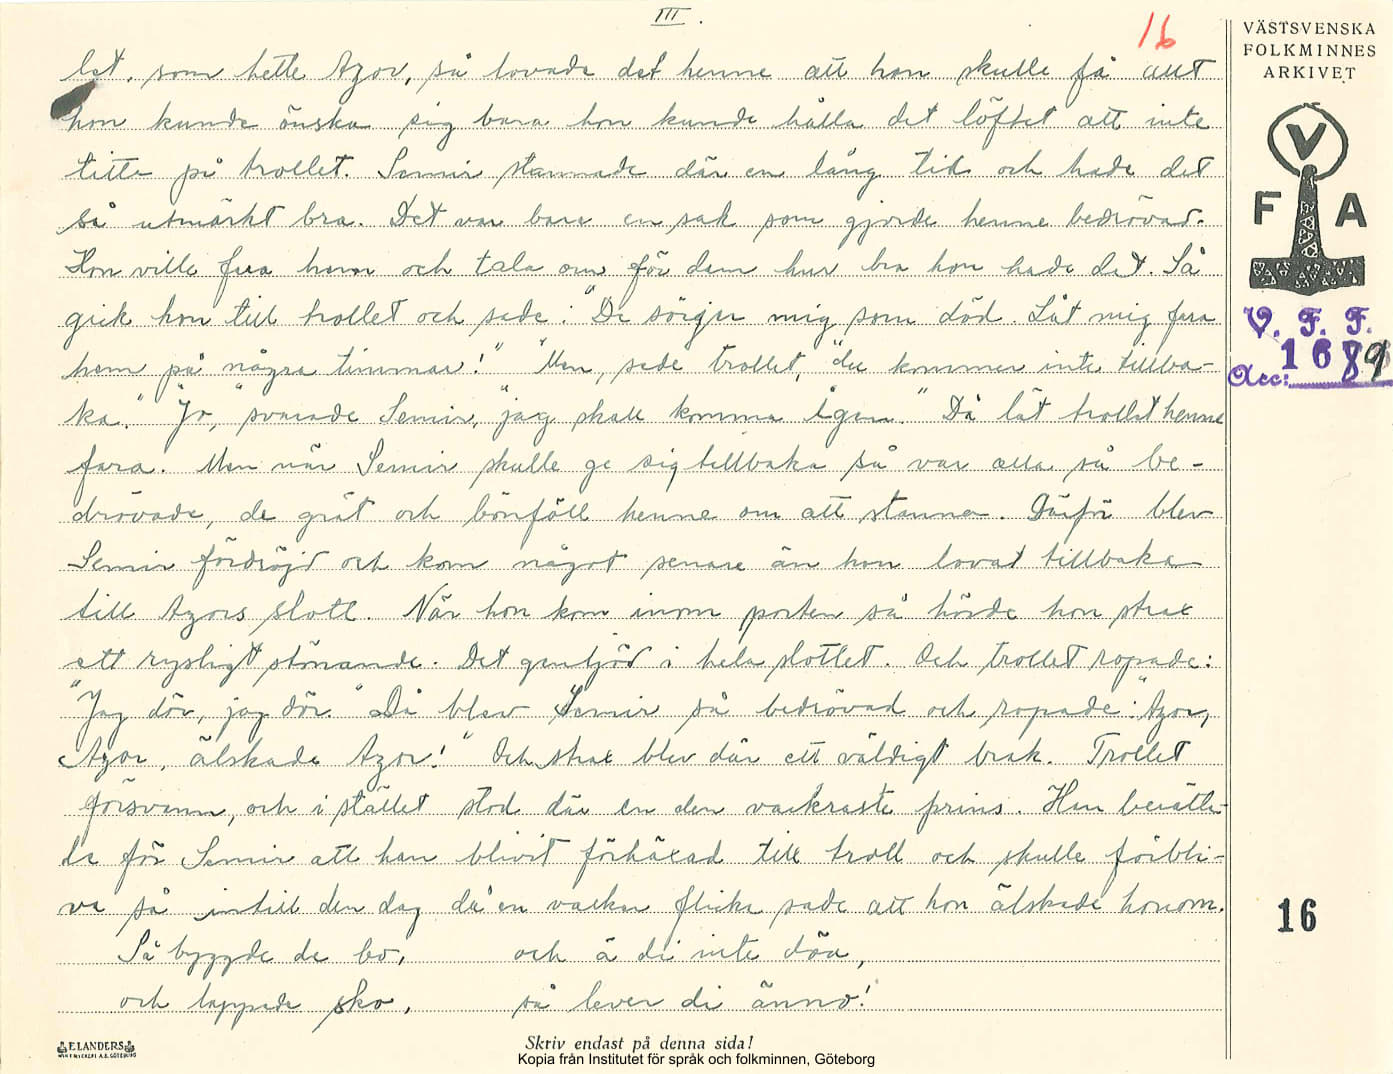 III.
16
let, som hette Azor, så lovade det henne att hon skulle få allt
hon kunde önska sig bara hon kunde hålla det löftet att inte
titta på trollet. Semir stannade där en lång tid och hade det
så utmärkt bra. Det var bara en sak som gjorde henne bedrövad.
Hon ville fara hem och tala om för dem hur bra hon hade det. Så
gick hon till trollet och sade: "De sörger mig som död. Låt mig fara
hem på några timmar!" "Men, sade trollet, "du kommer inte tillba-
ka." "Jo, svarade Semir, "jag skall komma igen." Då lät trollet henne
fara. Men när Semir skulle ge sig tillbaka så var alla så be-
drövade, de grät och bönföll henne om att stanna. Därför blev
Semir fördröjd och kom något senare än hon lovat tillbaka
till Azors slott. När hon kom inom porten så hörde hon strax
ett rysligt stönande. Det genljöd i hela slottet. Och trollet ropade:
"Jag dör, jag dör." Då blev Semir så bedrövad och ropade: "Azor,
Azor, älskade Azor!" Och strax blev där ett väldigt brak. Trollet
försvann, och i stället stod där en den vackraste prins. Han berätta-
de för Semir att han blivit förhäxad till troll och skulle förbli-
va så intill den dag då en vacker flicka sade att hon älskade honom.
Så byggde de bo, och ä di inte döa,
och lappade sko, så lever di änno!
VÄSTSVENSKA
FOLKMINNES
ARKIVET
V
F A
V. F. F.
Acc: 1689
16
ELANDERS
Skriv endast på denna sida!
Kopia från Institutet för språk och folkminnen, Göteborg